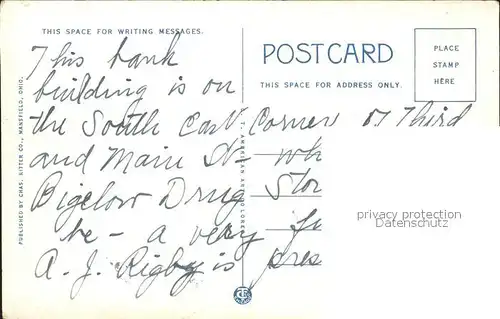 THIS SPACE FOR WRITING MESSAGES.
POST CARD
THIS SPACE FOR ADDRESS ONLY.
PLACE
STAMP
HERE
PUBLISHED BY CHAS. RITTER CO., MANSFIELD, OHIO.
This bank
building is on
the South East Corner of Third
and Main St - wh
Bigelow Drug Stor
be - a very fi
A. J. Rigby is pres
privacy protection
Datenschutz